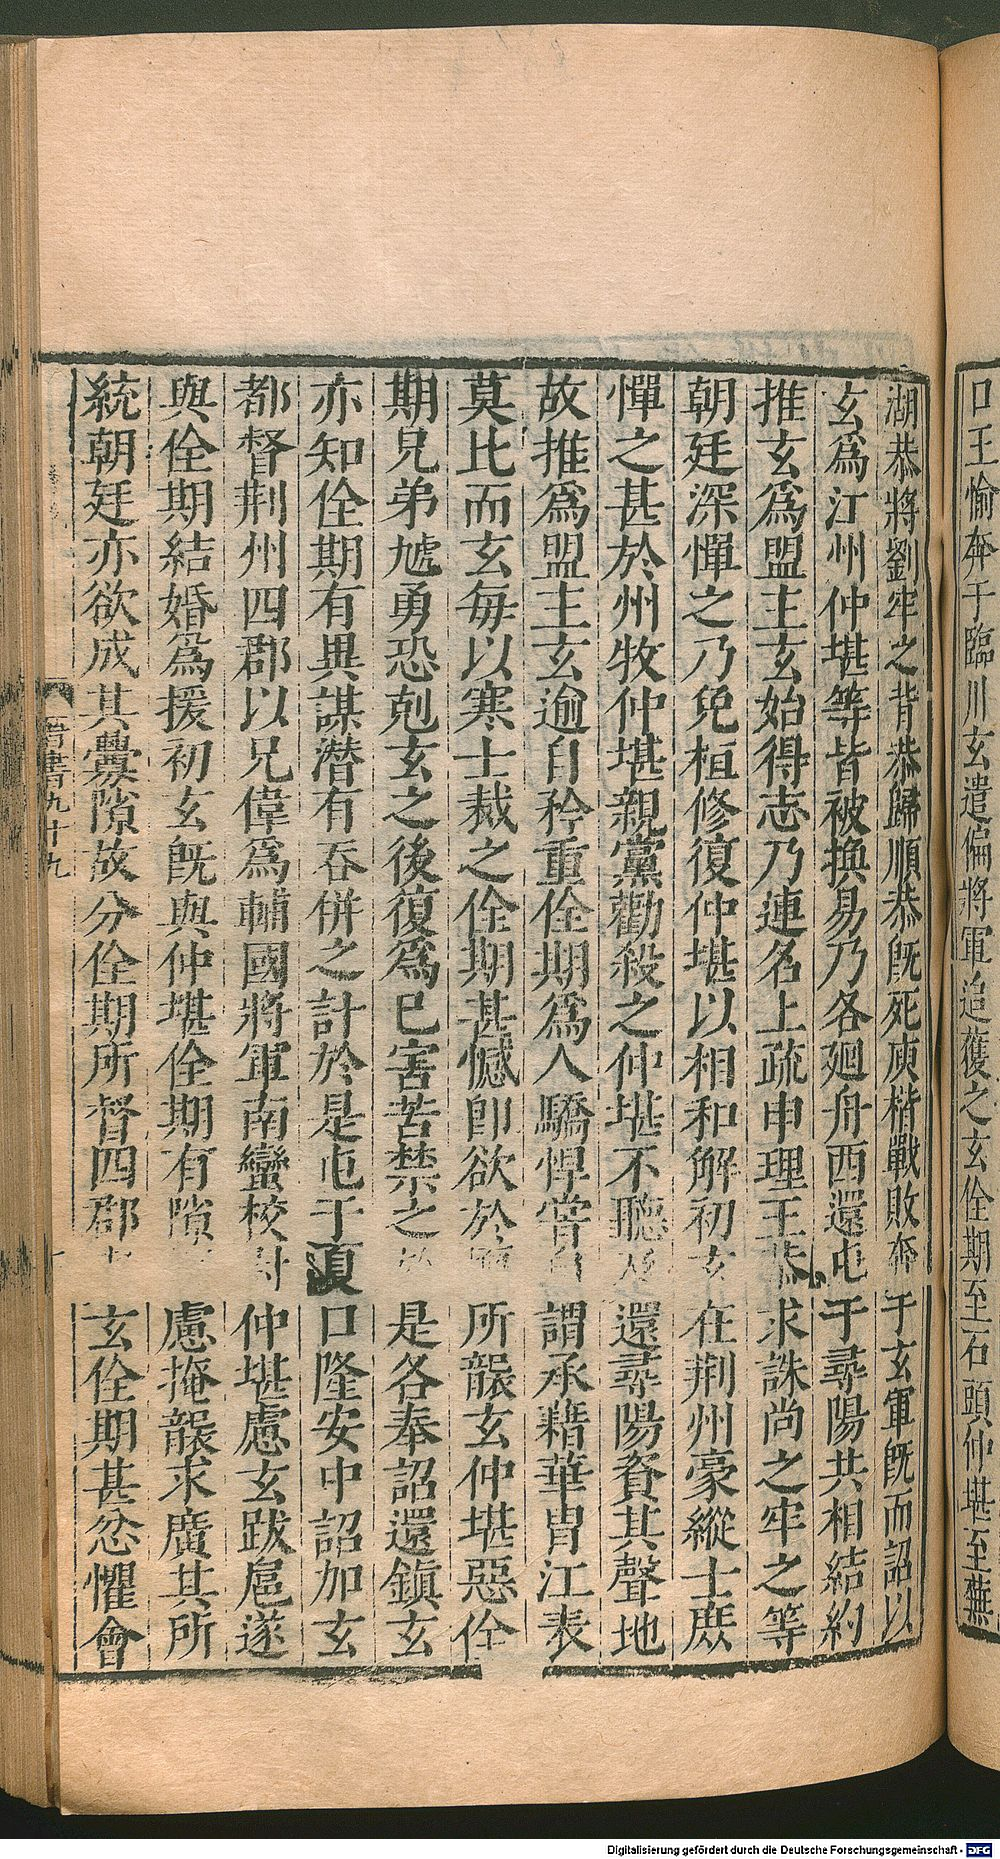 口王愉奔于臨川玄遣偏將軍追獲之玄佺期至石頭仲堪至蕪
湖恭將劉牢之背恭歸順恭旣死庾楷戰敗奔于玄軍旣而詔以
玄爲江州仲堪等皆被換易乃各廻舟西還屯于尋陽共相結約
推玄爲盟主玄始得志乃連名上疏申理王恭求誅尚之牢之等
朝廷深憚之乃免桓修復仲堪以相和解初玄在荆州豪縱士庶
憚之甚於州牧仲堪親黨勸殺之仲堪不聽及還尋陽資其聲地
故推爲盟主玄逾自矜重佺期爲人驕悍嘗自謂承藉華冑江表
莫比而玄每以寒士裁之佺期甚憾卽欲於所襲玄仲堪惡佺
期兄弟虓勇恐剋玄之後復爲已害苦禁之於是各奉詔還鎮玄
亦知佺期有異謀潜有吞併之計於是屯于夏口隆安中詔加玄
都督荆州四郡以兄偉爲輔國將軍南蠻校尉仲堪慮玄跋扈遂
與佺期結婚爲援初玄旣與仲堪佺期有隙慮掩襲求廣其所
統朝廷亦欲成其釁隙故分佺期所督四郡玄佺期甚忿懼會
晋書九十九
Digitalisierung gefördert durch die Deutsche Forschungsgemeinschaft - DFG